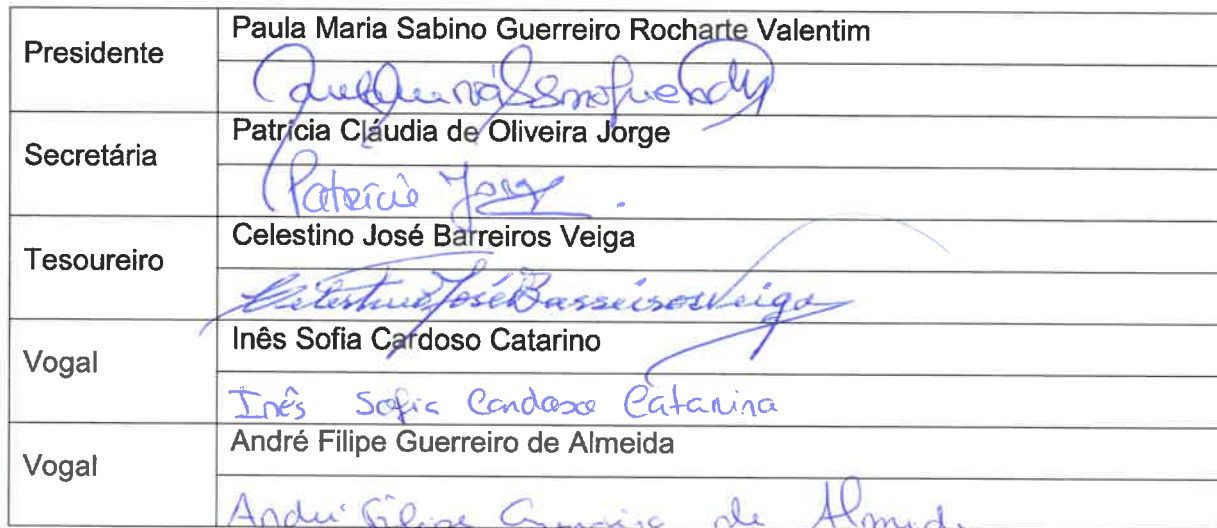 Presidente
Paula Maria Sabino Guerreiro Rocharte Valentim
Secretária
Patrícia Cláudia de Oliveira Jorge
Patrícia Jorge
Tesoureiro
Celestino José Barreiros Veiga
Celestino José Barreiros Veiga
Vogal
Inês Sofia Cardoso Catarino
Inês Sofia Cardoso Catarina
Vogal
André Filipe Guerreiro de Almeida
André Filipe Guerreiro de Almeida